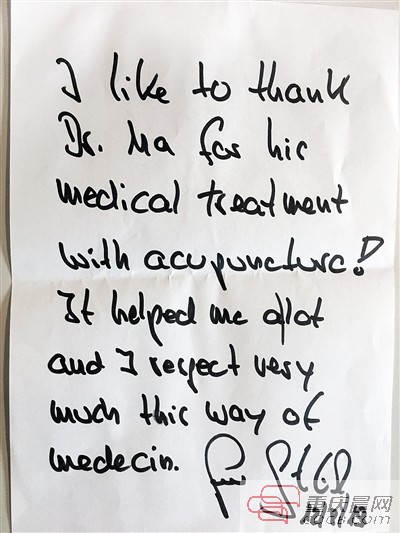 I like to thank
Dr. Ma for his
medical treatment
with acupuncture!
It helped me alot
and I respect very
much this way of
medecin.
重庆晨网
cqcb.com